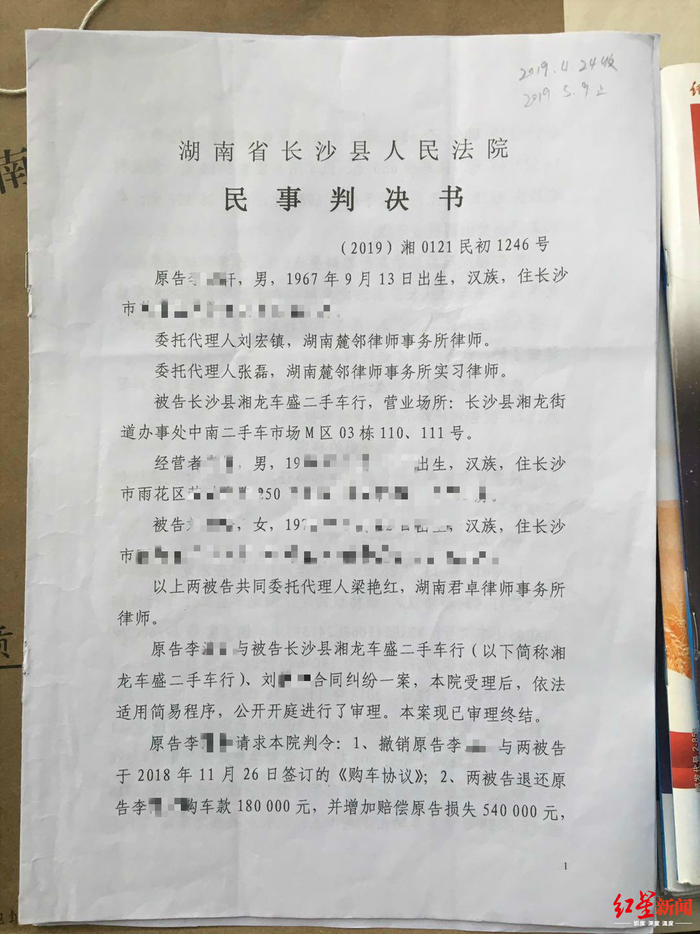 2019.4.24收
2019 5.9
湖南省长沙县人民法院
民事判决书
（2019）湘 0121 民初 1246 号
原告李 轩，男，1967 年 9 月 13 日出生，汉族，住长沙
市
委托代理人刘宏镇，湖南麓邻律师事务所律师。
委托代理人张磊，湖南麓邻律师事务所实习律师。
被告长沙县湘龙车盛二手车行，营业场所：长沙县湘龙街
道办事处中南二手车市场 M 区 03 栋 110、111 号。
经营者 ，男，19 出生，汉族，住长沙
市雨花区 850
被告 ，女，197 日出生，汉族，住长沙
市
以上两被告共同委托代理人梁艳红，湖南君卓律师事务所
律师。
原告李 与被告长沙县湘龙车盛二手车行（以下简称湘
龙车盛二手车行）、刘 合同纠纷一案，本院受理后，依法
适用简易程序，公开开庭进行了审理。本案现已审理终结。
原告李 请求本院判令：1、撤销原告李 与两被告
于 2018 年 11 月 26 日签订的《购车协议》；2、两被告退还原
告李 购车款 180 000 元，并增加赔偿原告损失 540 000 元，
1
南
质
红星新闻
态度 深度 温度